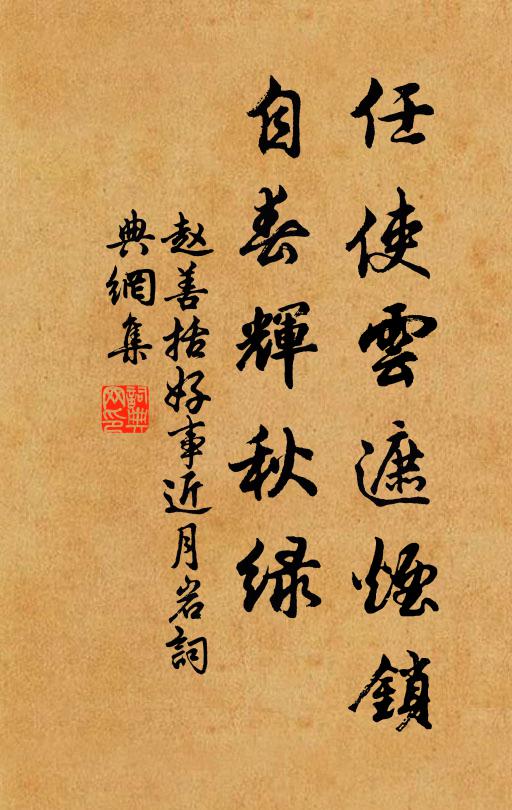 任使雲遮煙鎖
自春輝秋绿
赵善括好事近月岩詞
典網集
詞典网印